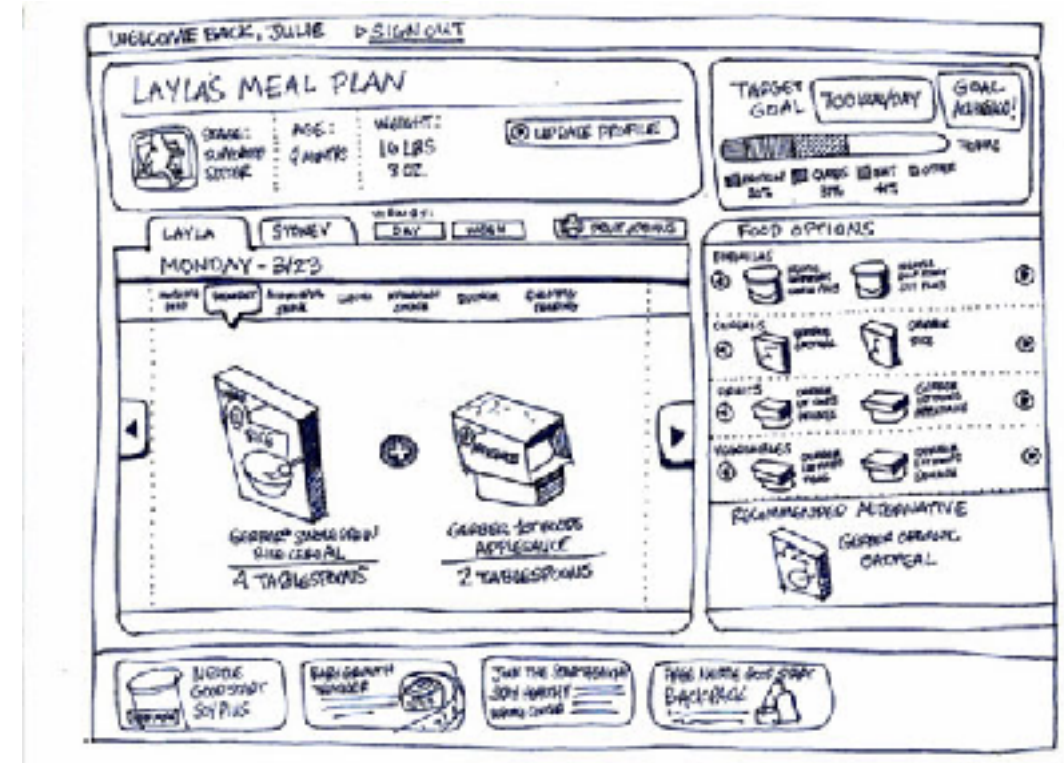 WELCOME BACK, JULIE ▷ SIGN OUT
LAYLA'S MEAL PLAN
STAGE:
SUPPORTED
SITTER
AGE:
9 MONTHS
WEIGHT:
16 LBS
3 OZ.
UPDATE PROFILE
TARGET
GOAL
700 KCAL/DAY
GOAL
ACHIEVED!
PROTEIN
CARBS
FAT
OTHER
LAYLA
SYDNEY
VIEW BY:
DAY
WEEK
PRINT OPTIONS
MONDAY - 3/23
BREAKFAST
LUNCH
DINNER
EVENING
FEEDING
RICE
GERBER® SINGLE GRAIN
RICE CEREAL
4 TABLESPOONS
GERBER 1ST FOODS
APPLESAUCE
2 TABLESPOONS
FOOD OPTIONS
FORMULAS
CEREALS
GERBER
OATMEAL
GERBER
RICE
FRUITS
GERBER
1ST FOODS
GERBER
1ST FOODS
APPLESAUCE
VEGETABLES
GERBER
1ST FOODS
GERBER
1ST FOODS
RECOMMENDED ALTERNATIVE
GERBER ORGANIC
OATMEAL
NESTLE
GOOD START
SOY PLUS
BABY GROWTH
TRACKER
JOIN THE
STAY HEALTHY
FREE NESTLE GOOD START
BACKPACK